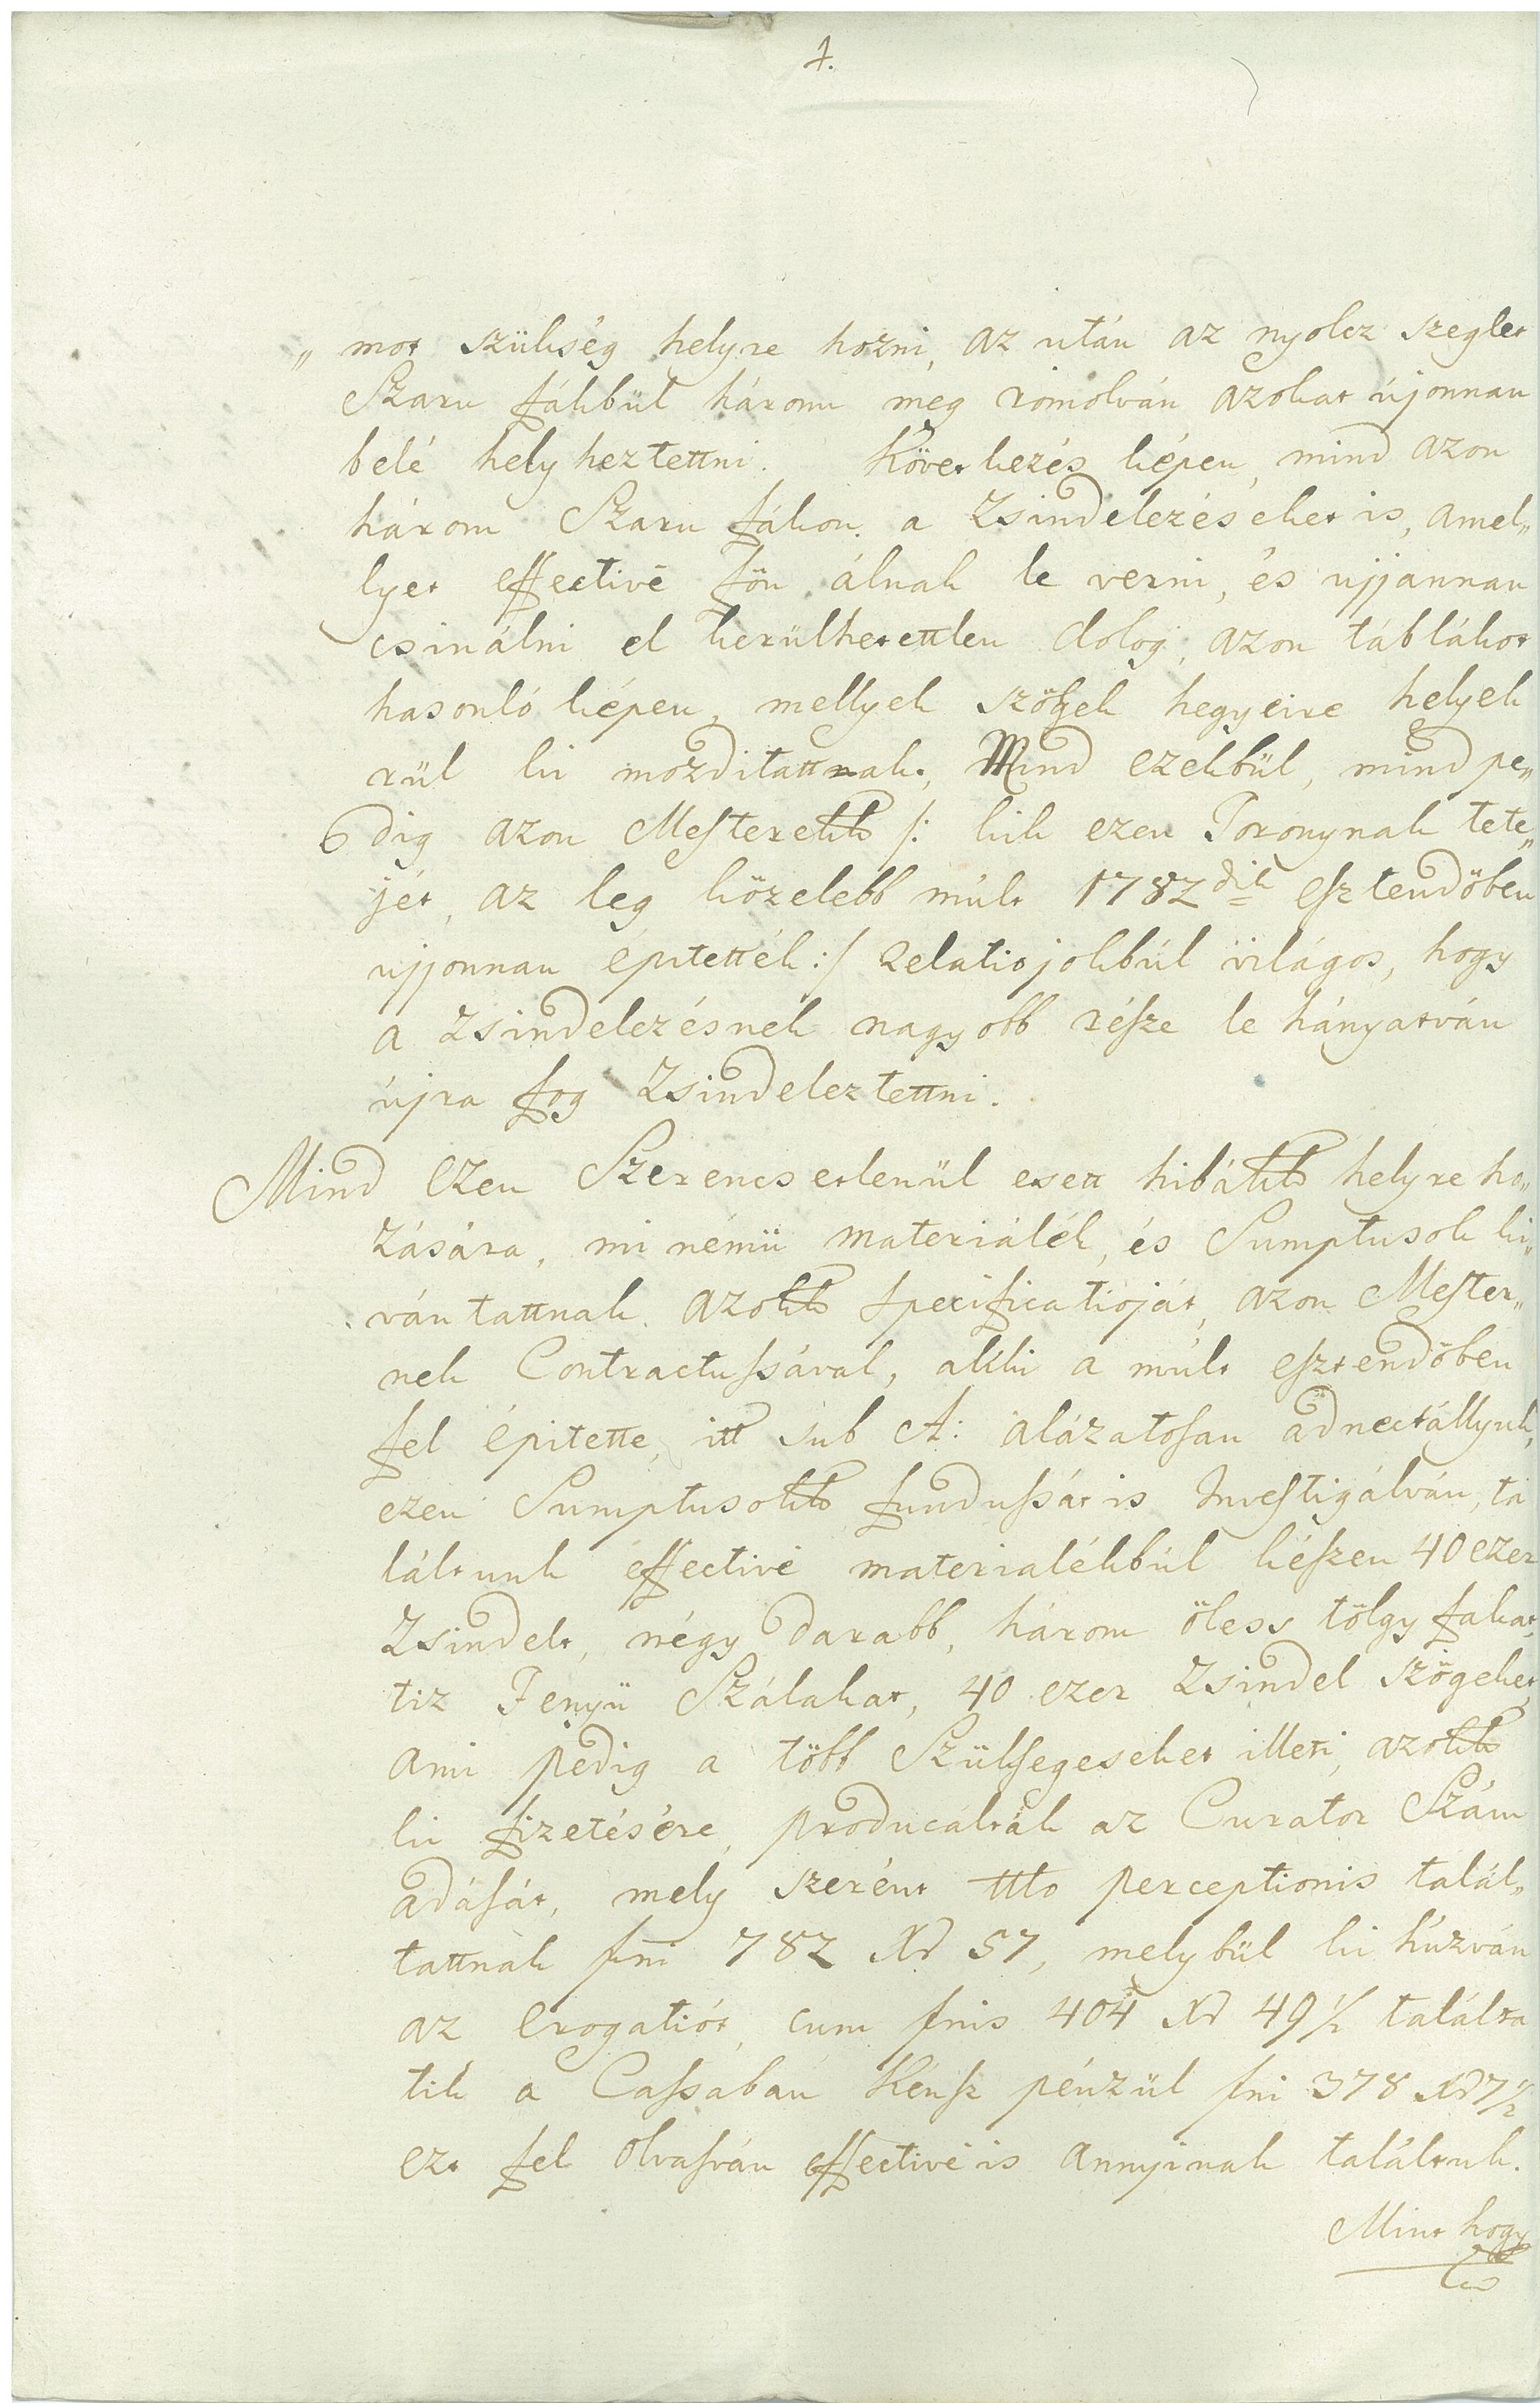 1.
„ mot szükség helyre hozni, az után az nyolcz szeglet
Szaru fákbúl három meg romolván azokat újonnan
belé helyheztettni. Következés képen, mind azon
három Szaru fákon a Zsindelezéseket is, amel„
lyet effective fön álnak le verni, és ujjannan
csinálni el kerülhetettlen dolog, azon táblákot
hasonló képen, mellyek szögek hegyeire helyek
rül ki mozditattnak, Mind ezekbül, mind pe„
dig azon Mesterekk /: kik ezen Toronynak tete„
jét, az leg közelebb múlt 1782dik esztendöben
ujjonnan épitették :/ Relatiojokbúl világos, hogy
a Zsindelezésnek nagyobb része le hányatván
újra fog Zsindeleztettni.
Mind ezen Szerencsetlenül esett hibákk helyre ho„
zására, mi némü materiálék, és Sumptusok ki„
vántattnak azokk specificatioját, azon Mester„
nek Contractussával, akki a múlt esztendöben
fel épitette, itt sub A: alázatosan adnectállyuk,
ezen Sumptusokk fundussát is Investigálván, ta
láltunk effective materialékbúl készen 40 ezer
Zsindelt, négy darabb, három öless tölgy fakat,
tiz Fenyü Szálakat, 40 ezer Zsindel szögeket,
ami pedig a több Szükségeseket illeti, azokk
ki fizetésére, producálták az Curator Szám
adását, mely szerént ttto perceptionis talál„
tattnak fni 782 Xr 57, melybül ki húzván
az erogatiót, cum fnis 404 Xr 49 1/2 találta
tik a Cassaban Kénsz pénzül fni 378 Xr 7 1/2
ezt fel olvasván effective is annyinak találtuk.
Mint hogy